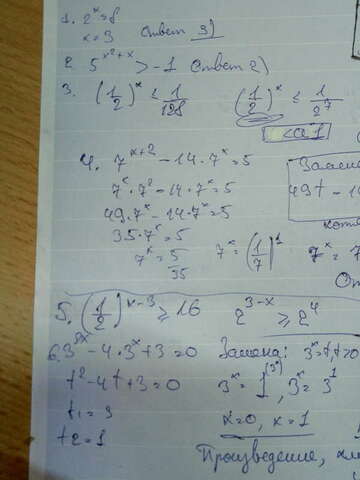 1. 2^x = 8
x = 3 Ответ 3)
2. 5^(x²+x) > -1 Ответ 2)
3. (1/2)^x ≤ 1/128 (1/2)^x ≤ 1/2^7
<a1
4. 7^(x+2) - 14·7^x = 5
7^x·7² - 14·7^x = 5
49·7^x - 14·7^x = 5
35·7^x = 5
7^x = 5/35 7^x = (1/7)^1 7^x = 7
49t - 1
5. (1/2)^(x-3) ≥ 16 2^(3-x) ≥ 2^4
6. 3^(2x) - 4·3^x + 3 = 0 Замена: 3^x = t, t>0
t² - 4t + 3 = 0 3^x = 1 (3°), 3^x = 3^1
t1 = 3 x=0, x=1
t2 = 1
Произведение,